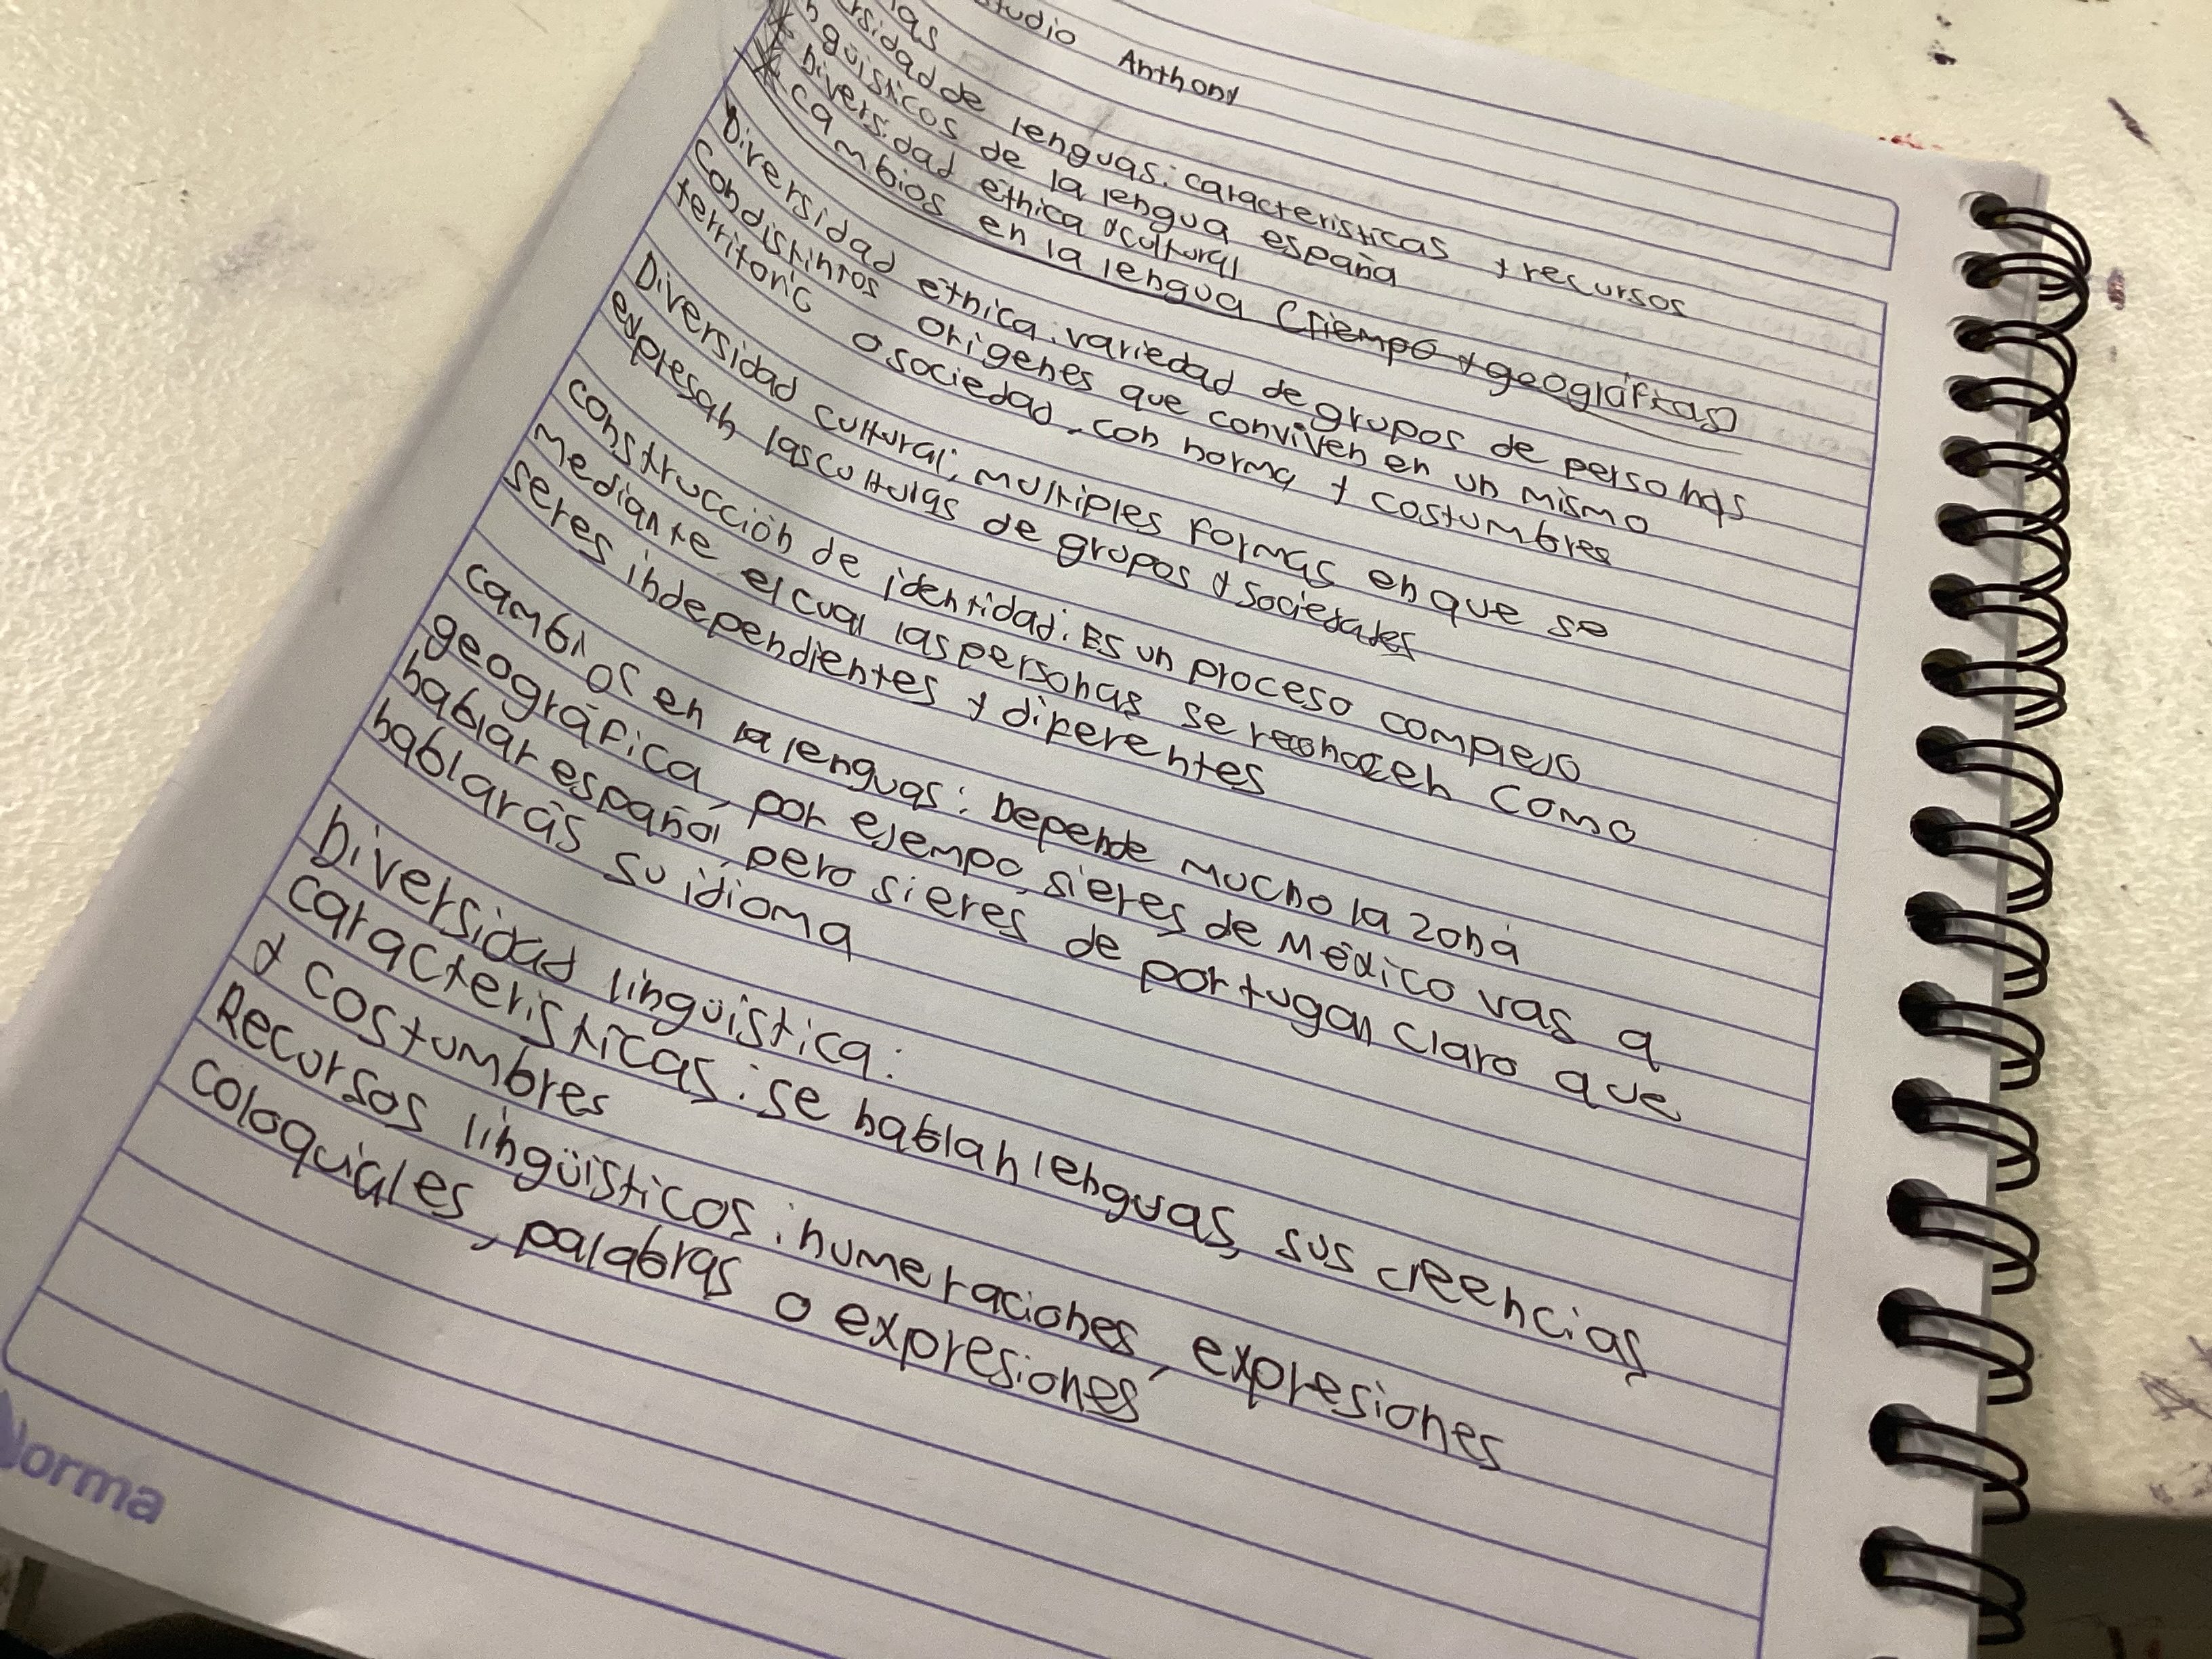 Anthony
lenguas: características y recursos
de la lengua españa
Diversidad étnica y cultural
cambios en la lengua (tiempo y geográficas)
Diversidad étnica: variedad de grupos de personas
Condistintos orígenes que conviven en un mismo
territorio o sociedad, con norma y costumbres
Diversidad cultural: multiples formas en que se
expresan las culturas de grupos y sociedades
construcción de identidad: Es un proceso complejo
mediante el cual las personas se reconocen como
seres independientes y diferentes
cambios en la lenguas: Depende mucho la zona
geográfica, por ejempo, si eres de México vas a
hablar español, pero si eres de portugal claro que
hablarás su idioma
Diversidad lingüística:
características: se hablan lenguas, sus creencias
y costumbres
Recursos lingüisticos: numeraciones, expresiones
coloquiales, palabras o expresiones
Norma